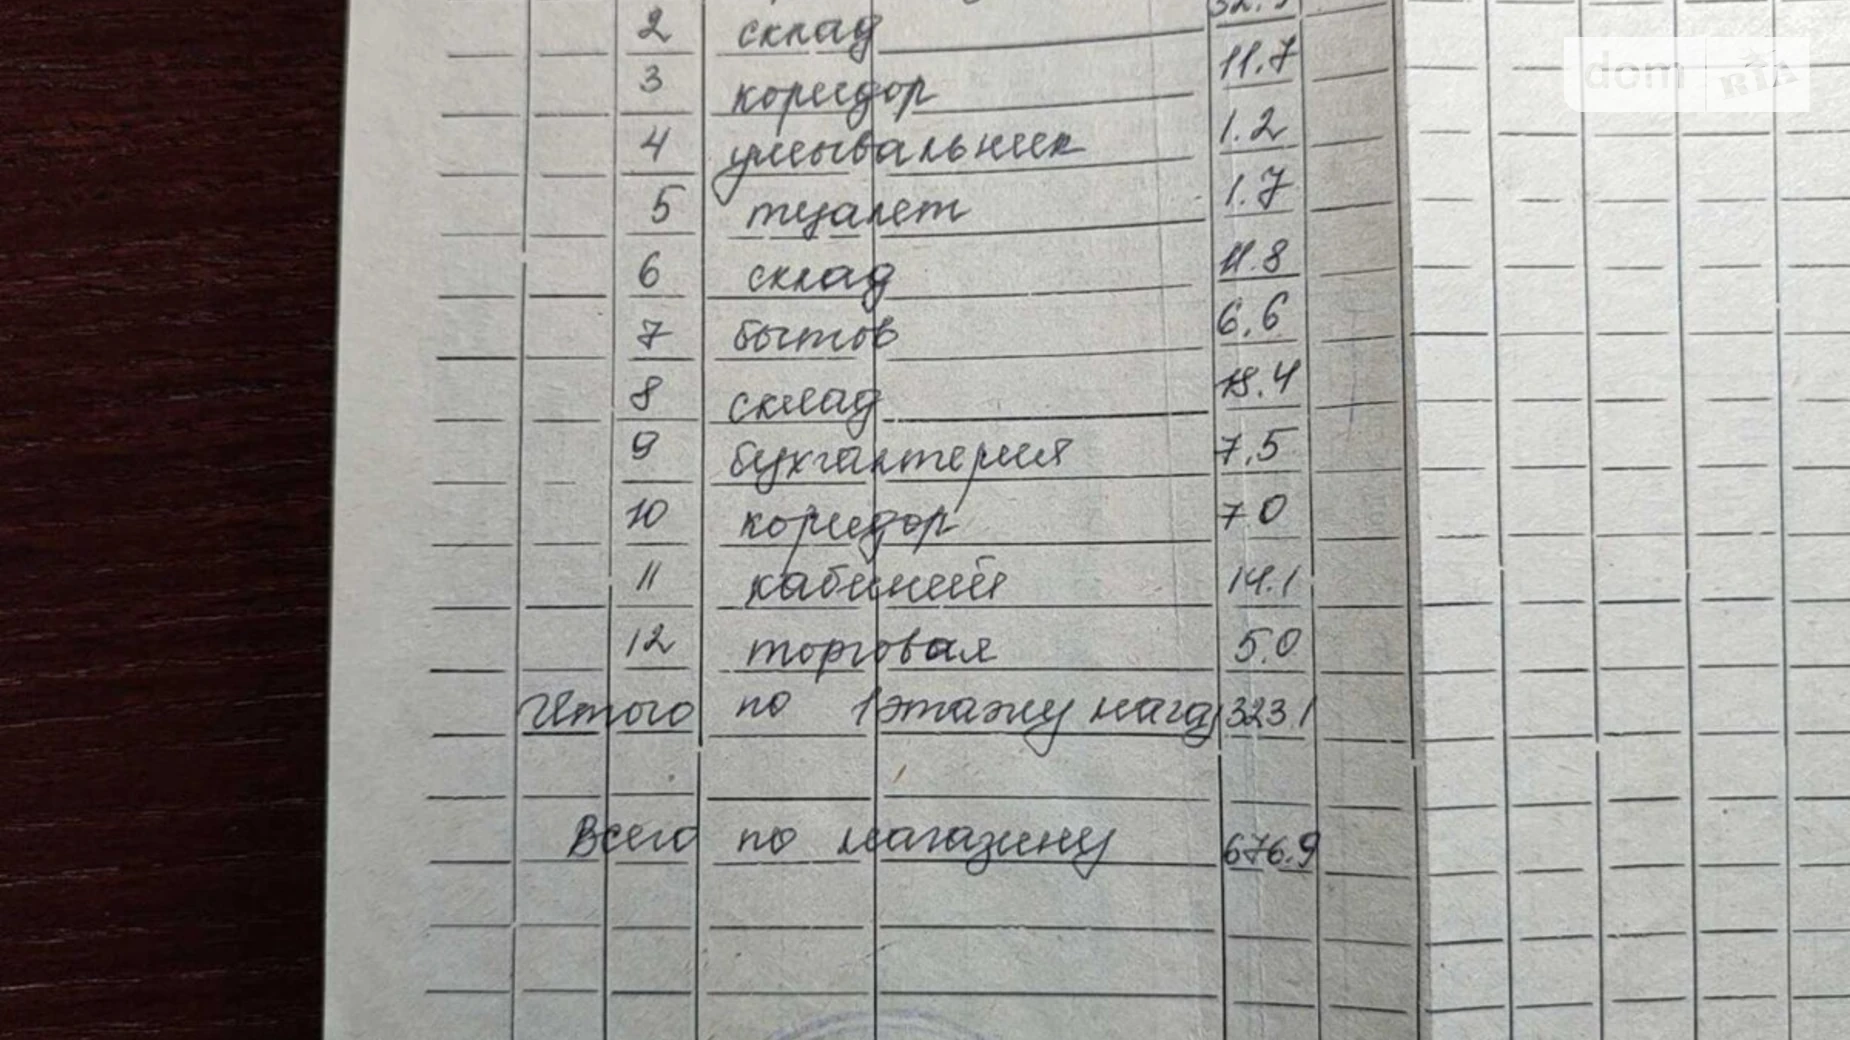 2 склад
3 коридор 11.7
4 умывальник 1.2
5 туалет 1.7
6 склад 11.8
7 бытов 6.6
8 склад 18.4
9 бухгалтерия 7.5
10 коридор 7 0
11 кабинет 14.1
12 торговая 5.0
Итого по 1 этажу магаз 323.1
Всего по магазину 676.9
dom RIA